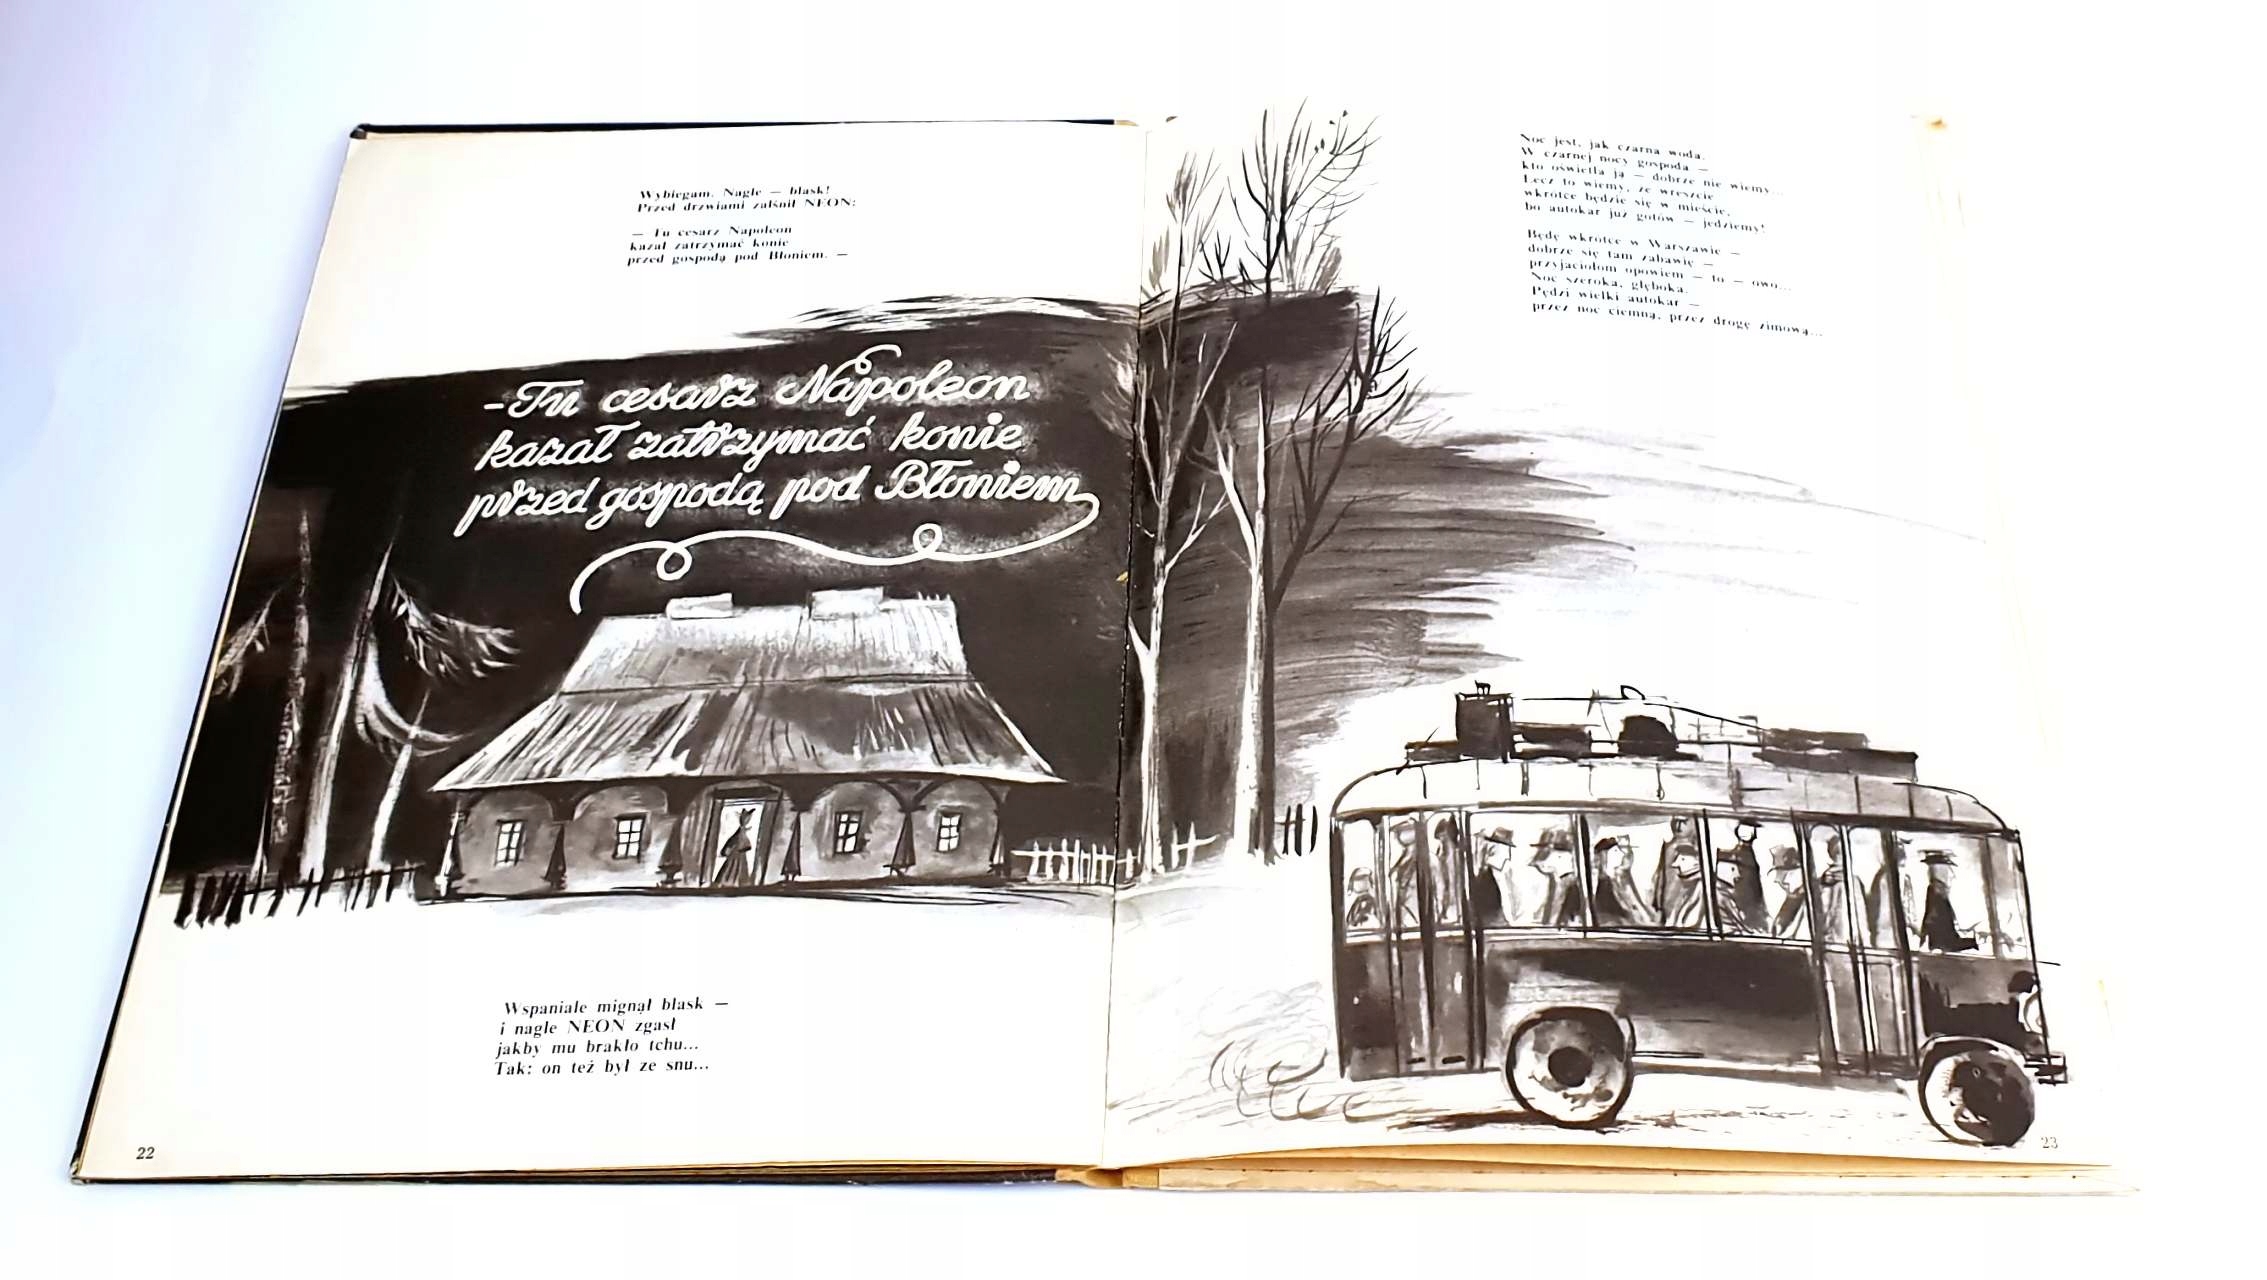 Wybiegam. Nagle — blask!
Przed drzwiami zalśnił NEON:
— Tu cesarz Napoleon
kazał zatrzymać konie
przed gospodą pod Błoniem. —
-Tu cesarz Napoleon
kazał zatrzymać konie
przed gospodą pod Błoniem
Wspaniale mignął blask —
i nagle NEON zgasł
jakby mu brakło tchu...
Tak: on też był ze snu...
22
Noc jest, jak czarna woda.
W czarnej nocy gospoda —
kto oświetla ją — dobrze nie wiemy...
Lecz to wiemy, że wreszcie
wkrótce będzie się w mieście,
bo autokar już gotów — jedziemy!
Będę wkrótce w Warszawie —
dobrze się tam zabawię —
przyjaciołom opowiem — to — owo...
Noc szeroka, głęboka.
Pędzi wielki autokar —
przez noc ciemną, przez drogę zimową...
23